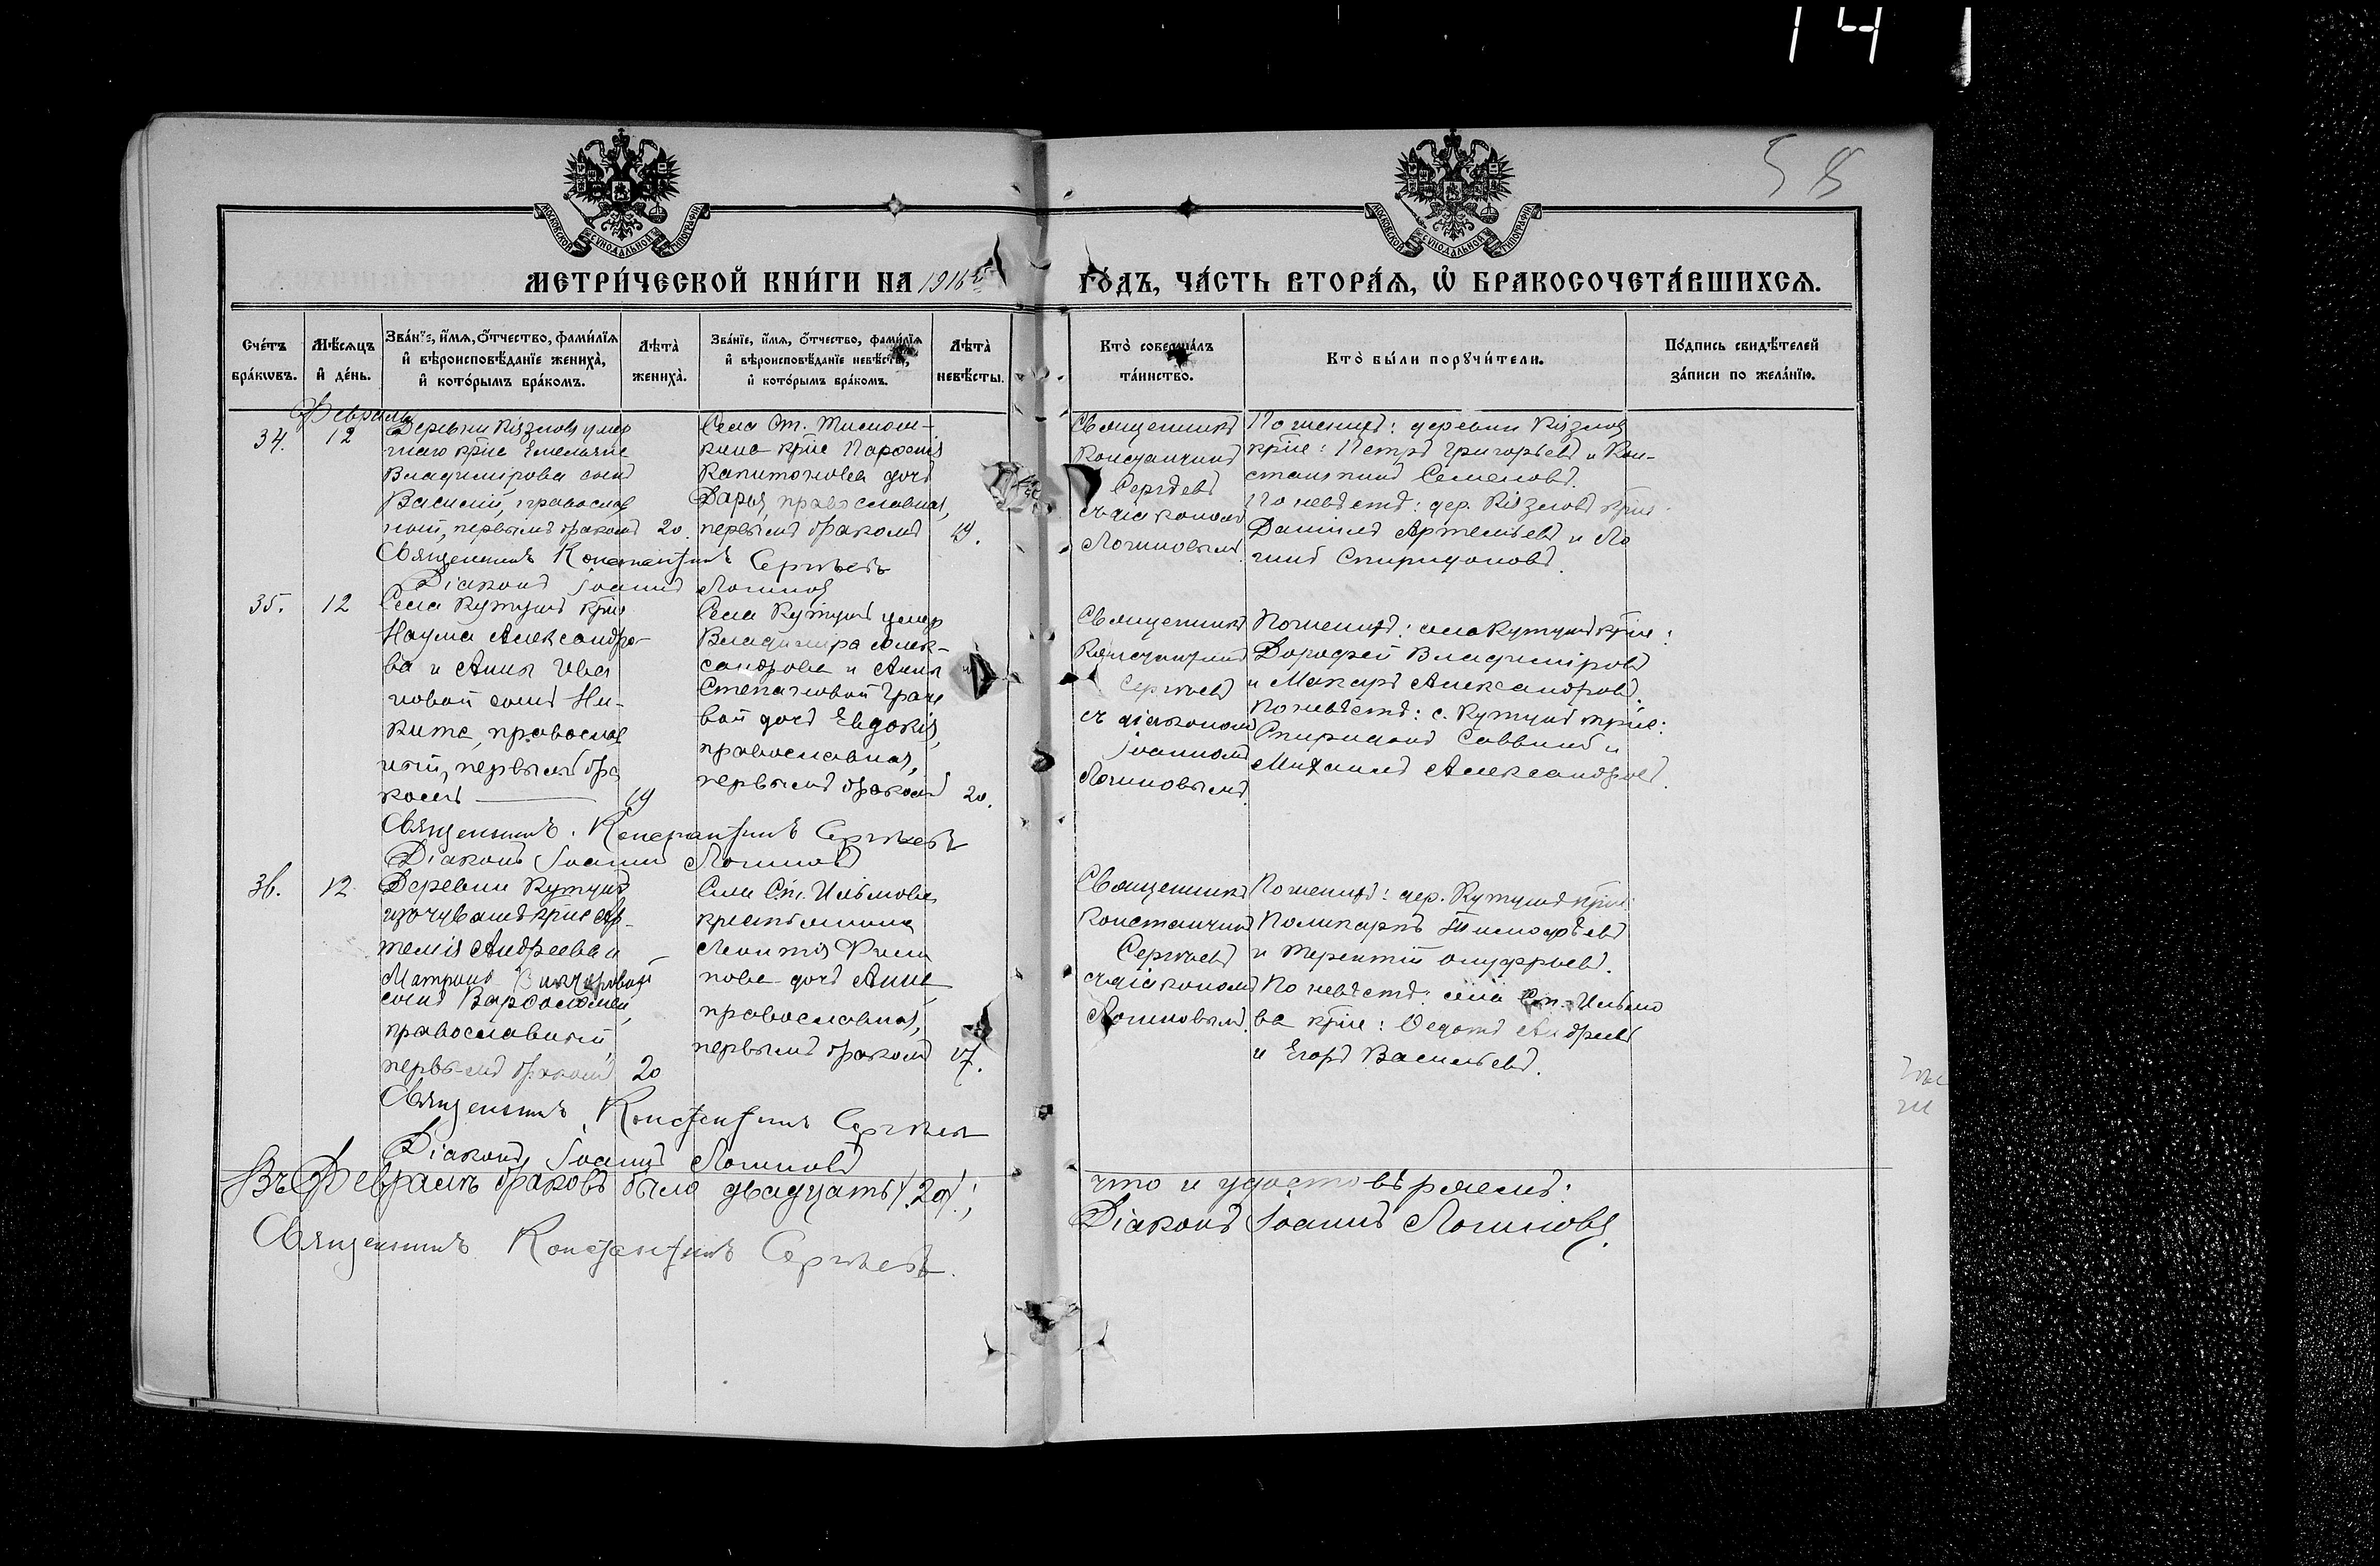 14
58
МОСКОВСКОЙ СѴНОДАЛЬНОЙ ТИПОГРАФІИ
МОСКОВСКОЙ СѴНОДАЛЬНОЙ ТИПОГРАФІИ
МЕТРИ́ЧЕСКОЙ КНИ́ГИ НА 1916й ГО́ДЪ, ЧА́СТЬ ВТОРА́Ѧ, Ѽ БРАКОСОЧЕТА́ВШИХСѦ.
Сче́тъ бра́кѡвъ.
Мѣ́сѧцъ и҆ де́нь.
Зва́нїе, и҆́мѧ, ѻ҆́тчество, фами́лїѧ
и҆ вѣроисповѣ́данїе жениха̀,
и҆ кото́рымъ бра́комъ.
Лѣта̀ жениха̀.
Зва́нїе, и҆́мѧ, ѻ҆́тчество, фами́лїѧ
и҆ вѣроисповѣ́данїе невѣ́сты,
и҆ кото́рымъ бра́комъ.
Лѣта̀ невѣ́сты.
Кто̀ соверша́лъ та́инство.
Кто̀ бы́ли порꙋчи́тели.
По́дпись свидѣ́телей
за́писи по жела́нїю.
Февраль
34.
12
Деревни умер
шаго кр͠не Емельяна
Владимірова сынъ
Василій, православ
ный, первымъ бракомъ
20.
Села Ст.
кина кр͠не
Капитонова дочь
Дарья, православная,
первымъ бракомъ
19.
Священникъ
Константинъ
Сергѣевъ
съ діакономъ
Логиновымъ
По женихѣ: деревни
кр͠не: Петръ Григорьевъ и Кон-
стантинъ Семеновъ.
По невѣстѣ: дер. кр͠не
Даніилъ Артемьевъ и Ло
гинъ Спиридоновъ.
Священникъ Константинъ Сергѣевъ
Діаконъ Іоаннъ Логиновъ
35.
12
Села Кутушъ кр͠не
Наума Александро-
ва и Анны Ива
новой сынъ Ни-
кита, православ
ный, первымъ бра
комъ
19
Села Кутушъ умер
Владиміра Алек-
сандрова и Анны
Степановой
вой дочь Евдокія,
православная,
первымъ бракомъ
20.
Священникъ
Константинъ
Сергѣевъ
съ діакономъ
Іоанномъ
Логиновымъ.
По женихѣ: села Кутушъ кр͠не:
Дорофей Владиміровъ
и Макаръ Александровъ.
По невѣстѣ: с. Кутушъ кр͠не:
Спиридонъ Саввинъ и
Михаилъ Александровъ.
Священникъ Константинъ Сергѣевъ
Діаконъ Іоаннъ Логиновъ
36.
12
Деревни Кутушъ
изъ чувашъ кр͠не Ар-
темія Андреева и
Матроны
сынъ Варфоломей,
православный,
первымъ бракомъ
20
Села Ст. Ильмова
крестьянина
Леонтія Филип
пова дочь Анна
православная,
первымъ бракомъ
17.
Священникъ
Константинъ
Сергѣевъ
съ діакономъ
Логиновымъ.
По женихѣ: дер. Кутушъ кр͠не:
Поликарпъ Тимофѣевъ
и Терентій Онуфріевъ.
По невѣстѣ: села Ст. Ильмо
ва кр͠не: Ѳедотъ Андреевъ
и Егоръ Васильевъ.
Священникъ Константинъ Сергѣевъ
Діаконъ Іоаннъ Логиновъ
Въ Февралѣ браковъ было двадцать /.20/.; что и удостовѣряемъ:
Священникъ Константинъ Сергѣевъ.
Діаконъ Іоаннъ Логиновъ.